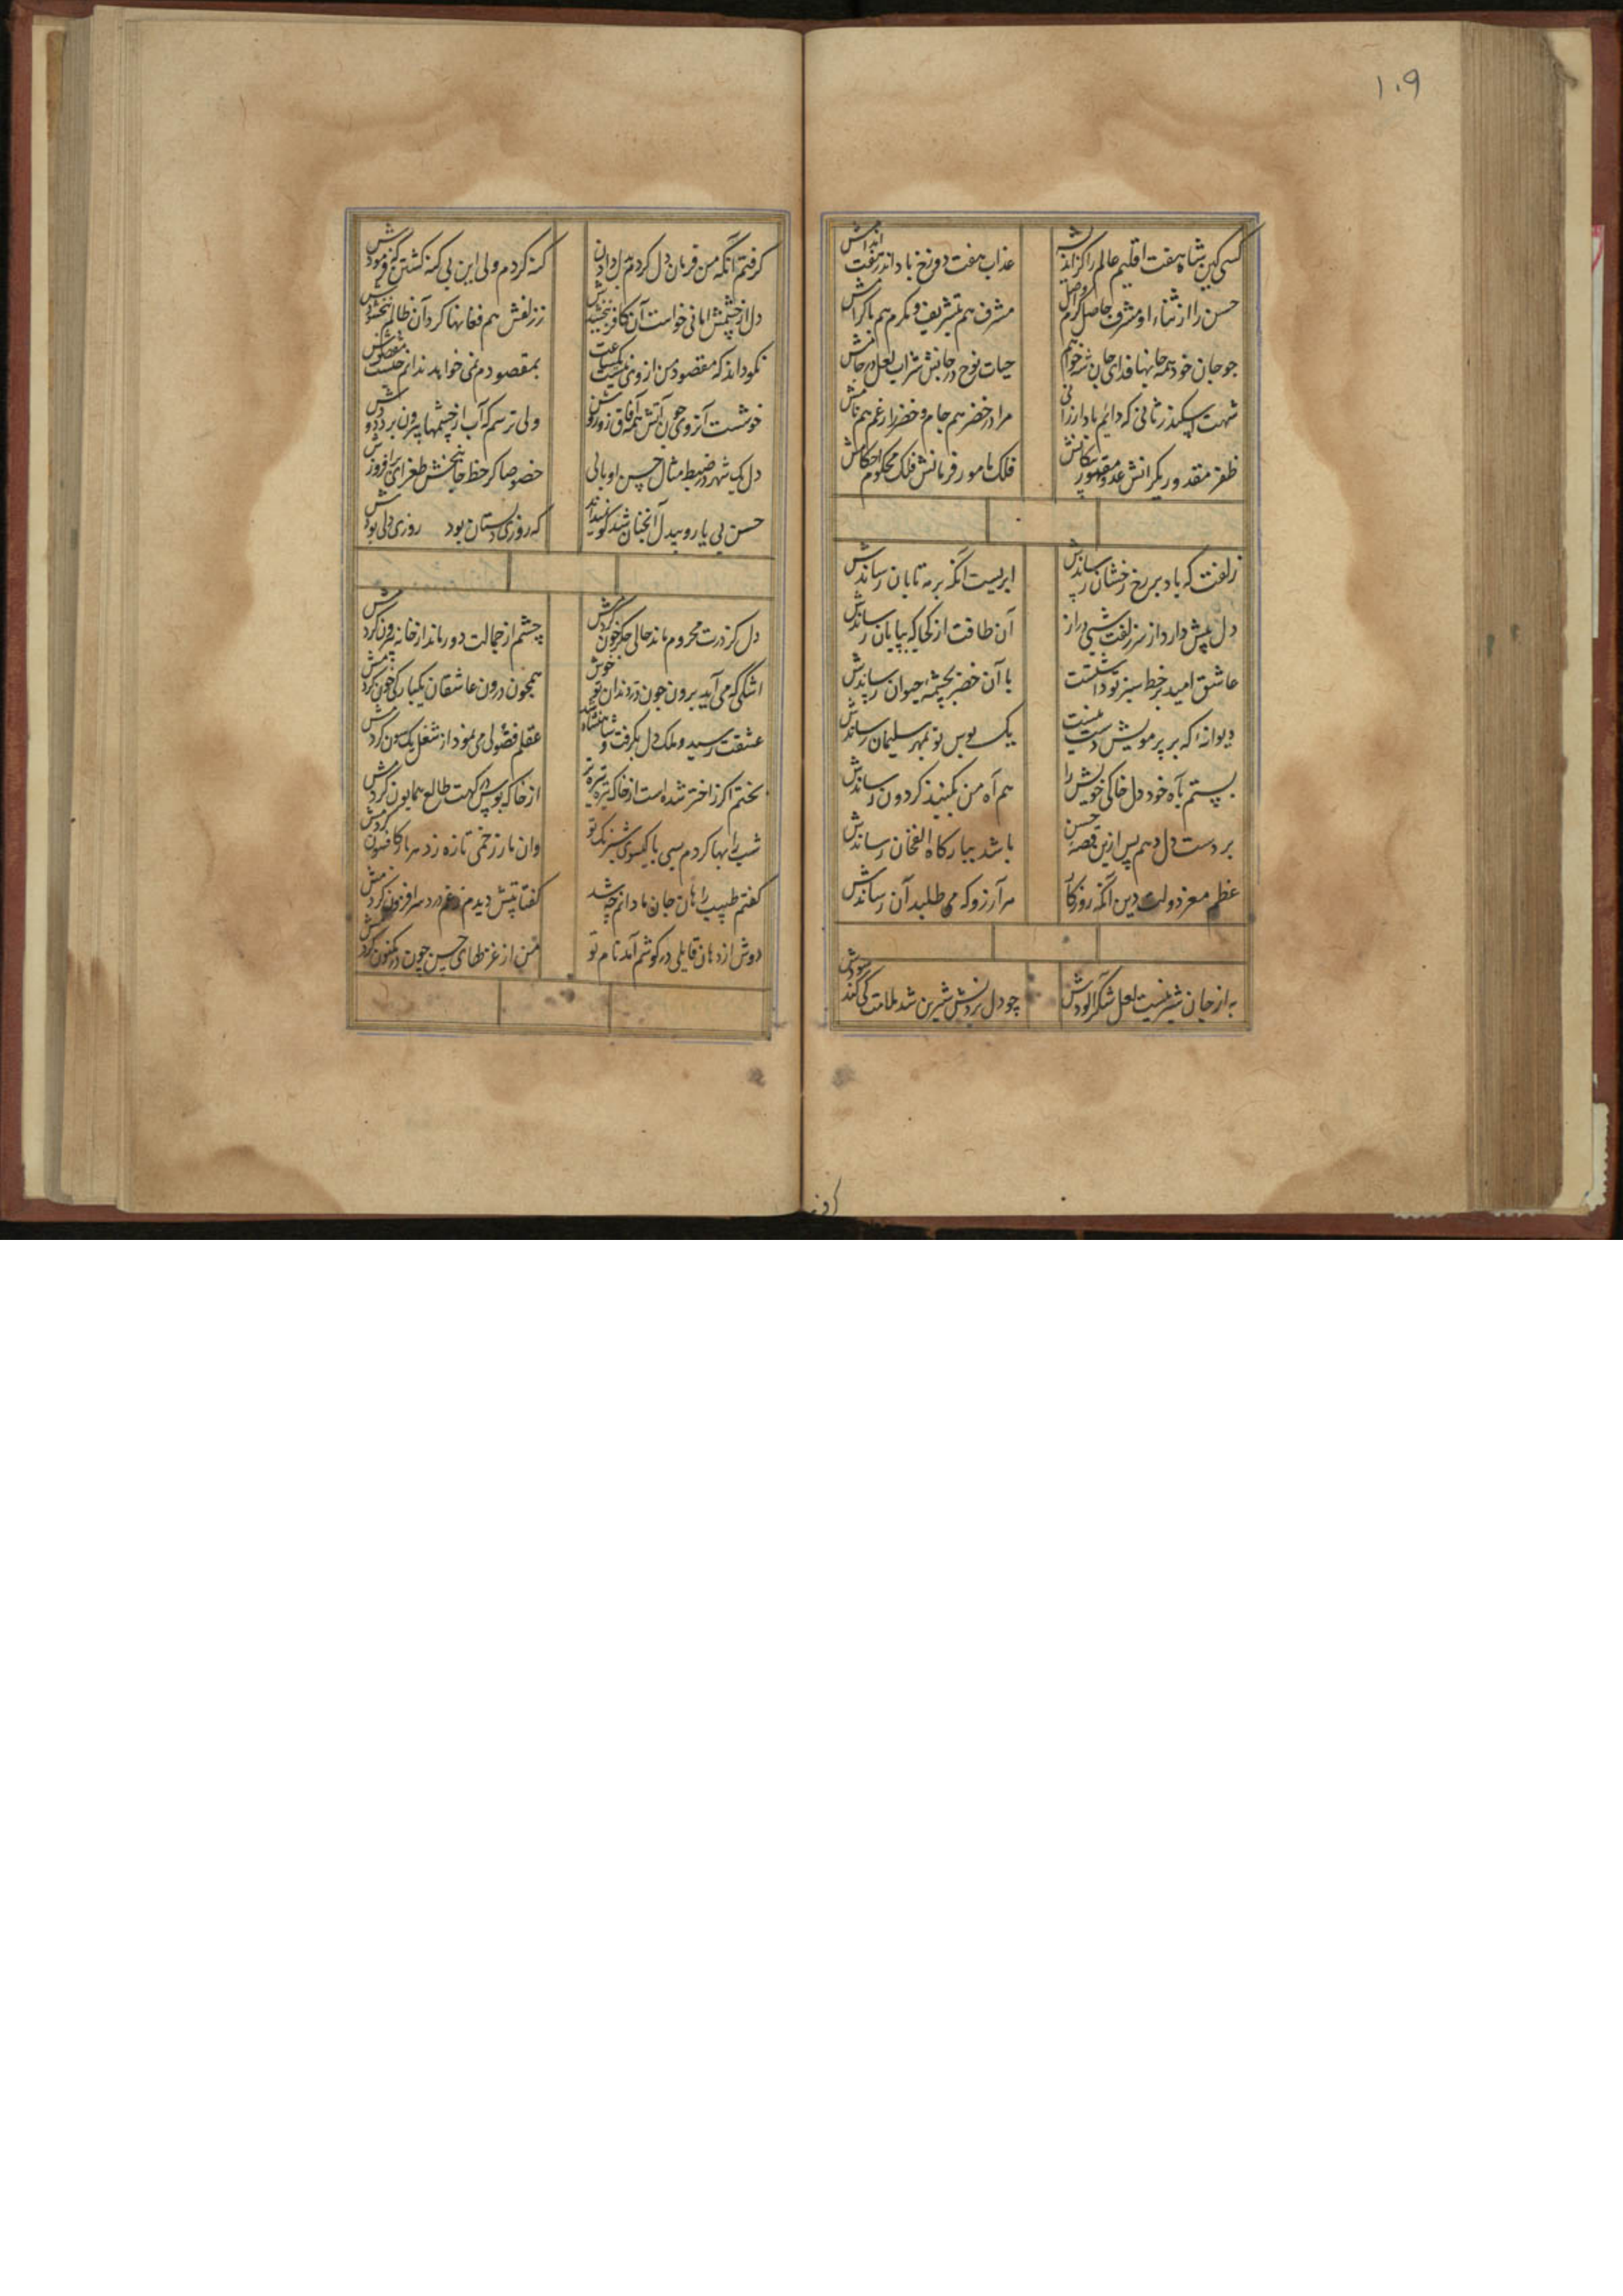 ۱۰۹
کسی کین شاه هفت اقلیم عالم را
عذاب هفت دوزخ باد اندر هفت اندامش
حسن را از ثناء او مشرف حاصل
مشرف هم بتشریف و مکرم هم باکرامش
جو جان خود همه جانها فدای جان شه خواهم
حیات نوح در جانش شراب لعل در جامش
شهت اسکندر ثانی که دائم باد ارزانی
مراد خضر هم جام و خضر را غم هم نامش
ظفر مقدور یکرانش عدو مقهور پیکانش
فلک مامور فرمانش فلک محکوم احکامش
زلفت که باد بر رخ رخشان رساندش
ابریست انکه بر مه تابان رساندش
دل پیش دارد از سر زلفت شبی دراز
آن طاقت از کجا که بپایان رساندش
عاشق امید بر خط سبز تو داشتست
با آن خضر بچشمه حیوان رساندش
دیوانه ا که بر پر مویش دست نیست
یک بوس تو بمهر سلیمان رساندش
بستم بآه خود دل خاکی خویش را
هم آه من بکنبد کردون رساندش
بر دست دل دهم پس ازین قصه حسن
باشد ببارکاه الغخان رساندش
عظم معز دولت دین انکه روزکار
هر آرزو که می طلبد آن رساندش
به از جان شیرینیست لعل شکر آلودش
چو دل بردنش شیرین شد ملامت کی کند سودش
کرفتم انکه من فرمان دل کردم
کنه کردم ولی این بی کنه کشتن که فرمودش
دل از چشمش امانی خواست آن کافر نبخشیدش
ز زلفش هم فغانها کرد آن ظالم نبخشودش
نکو داند که مقصود من از وی نیست یکساعت
بمقصودم نمی خواهد ندانم چیست مقصودش
خوشست آنروی جون آتش همه آفاق زو روشن
ولی ترسم که آب از چشمها بیرون برد دودش
دل یک شهر در ضبط مثال حسن او بالی
خصوصا کر خط جانبخش طغرای بر افزودش
حسن بی یار و بیدل آنجنان شد کو نمیداند
که روزی دلستان بود روزی دلی بودش
دل کز درت محروم ماند حالی جکر خون کردش
چشم از جمالت دور ماند از خانه بیرون کردمش
اشکی که می آید برون جون در دندان تو خوش
همجون درون عاشقان یکبارکی خون کردمش
عشقت رسید و ملک دل بکرفت و شاهنشاه شد
عقلم فضولی می نمود از شغل یک سون کردمش
بختم اکر ز اختر شده است از خاک تیره تیره تر
از خاک بوس درکهت طالع همایون کردمش
شب را بها کردم بسی با کیسوی شبرنک تو
وان مار زخمی تازه زد هر بار کافسون کردمش
کفتم طبیب را هان جان ما دانم چه شد
کفتا تپش دیدم ز غم درد سر افزون کردمش
دوش از دهان قایلی در کوشم آمد نام تو
من از غزلهای حسن چون در مکنون کردمش